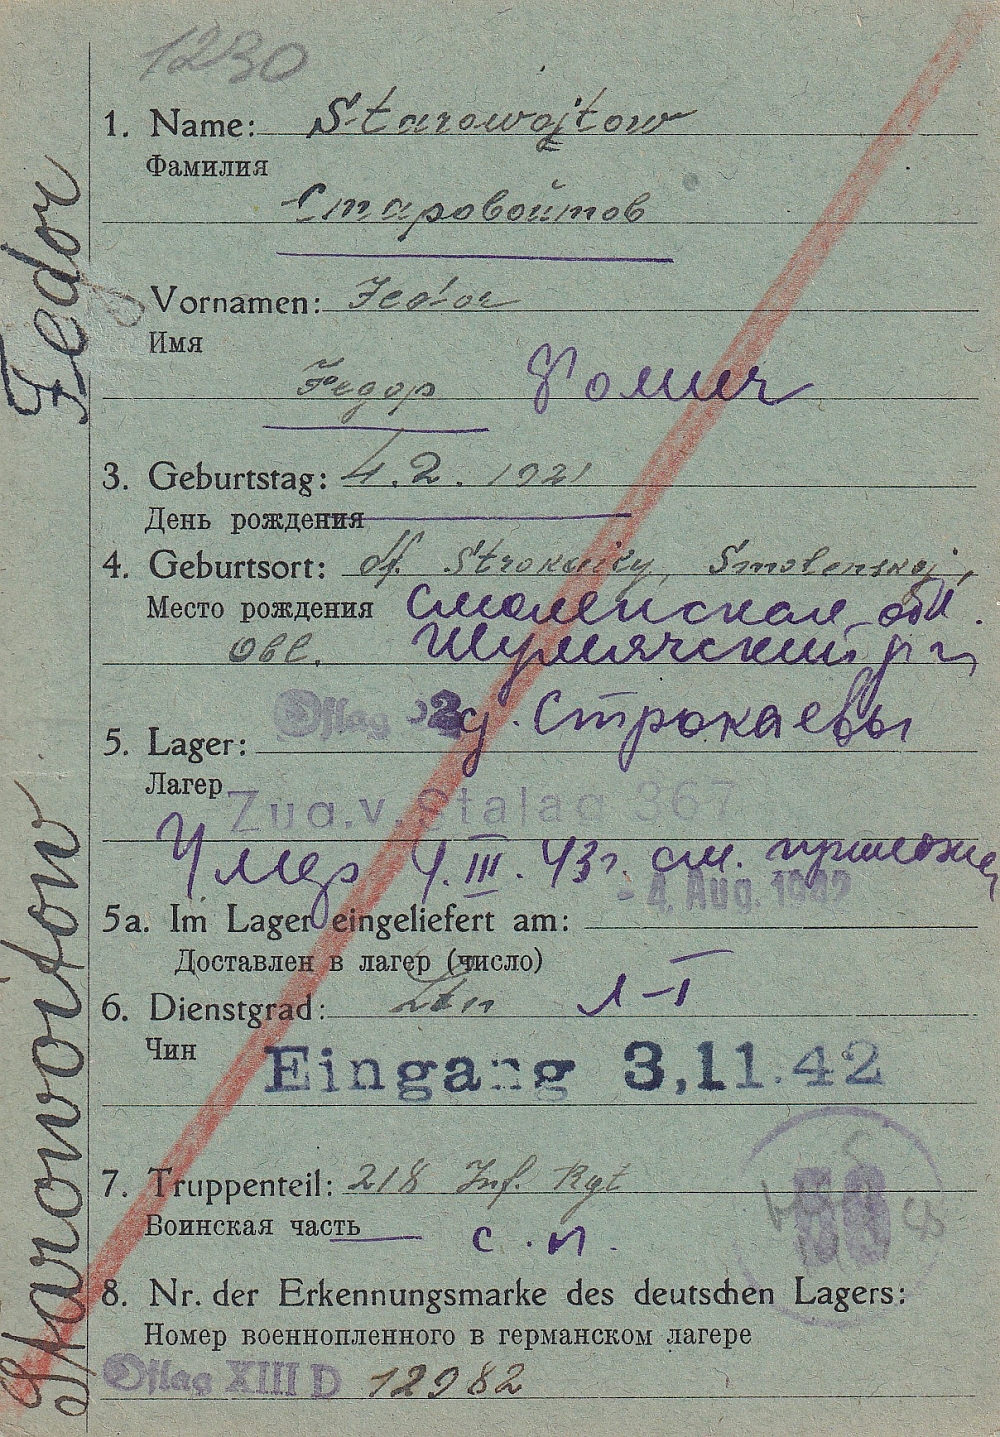 1230
1. Name: Starowojtow
Фамилия
Старовойтов
Vornamen: Fedor
Имя
Федор Фомич
3. Geburtstag: 4.2. 1921
День рождения
4. Geburtsort: df. Smolenskoj,
Место рождения Смоленская обл.
Obl. Шумячский р-н
Oflag
д. Строкаевы
5. Lager:
Лагер
Zug.v. Stalag 367
Умер 4.III.43г. см.
- 4. Aug. 1942
5a. Im Lager eingeliefert am:
Доставлен в лагер (число)
6. Dienstgrad: Ltn л-т
Чин
Eingang 3.11.42
7. Truppenteil: 218 Inf. Rgt
Воинская часть с.п.
8. Nr. der Erkennungsmarke des deutschen Lagers:
Номер военнопленного в германском лагере
Oflag XIII D 12982
Starowoitow Fedor